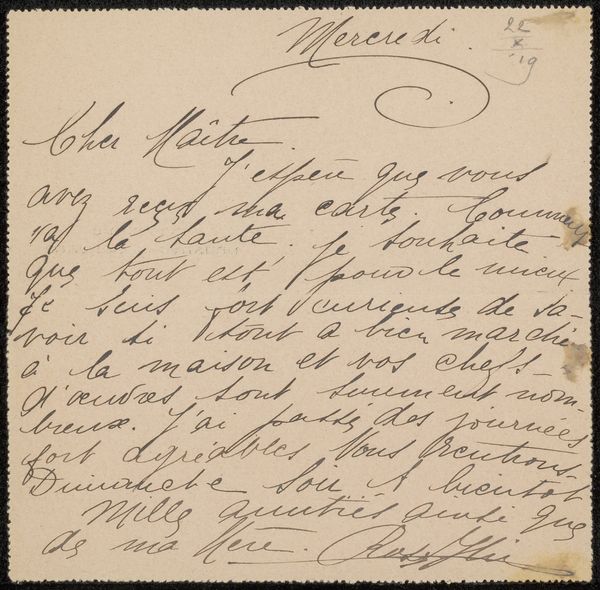 Mercredi.
22
X
'19
Cher Maître.
J'espère que vous
avez reçu ma carte. Comment
va la santé, je souhaite
que tout est pour le mieux
Je suis fort curieuse de sa-
voir si tout a bien marché
à la maison et vos chefs-
d'œuvres sont surement nom-
breux. J'ai passé des journées
fort agréables. Nous rentrons
Dimanche soir. A bientôt
Mille amitiés ainsi que
de ma Mère.